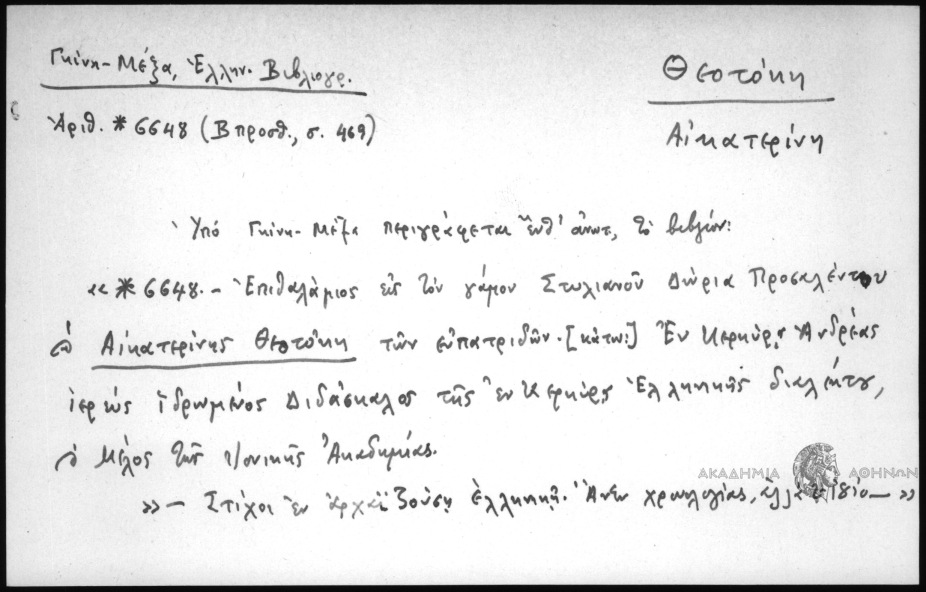 Γκίνη-Μέξα, Ἑλλην. Βιβλιογρ.
Θεοτόκη
Ἀριθ. *6648 (Β προσθ., σ. 469)
Αἰκατερίνη
Ὑπό Γκίνη-Μέξα περιγράφεται ἔνθ' ἀνωτ, τό βιβλίον:
«*6648.- Ἐπιθαλάμιος εἰς τόν γάμον Στυλιανοῦ Δώρια Προσαλέντου
Αἰκατερίνης Θεοτόκη τῶν εὐπατριδῶν. [κάτω:] Ἐν Κερκύρᾳ Ἀνδρέας
ἱερεύς Ἱδρωμένος Διδάσκαλος τῆς ἐν Κερκύρᾳ Ἑλληνικῆς διαλέκτου,
Μέλος τῆς Ἰονικῆς Ἀκαδημίας.
ΑΚΑΔΗΜΙΑ ΑΘΗΝΩΝ
»- Στίχοι ἐν ἀρχαϊζούσῃ ἑλληνικῇ. Ἄνευ χρονολογίας,